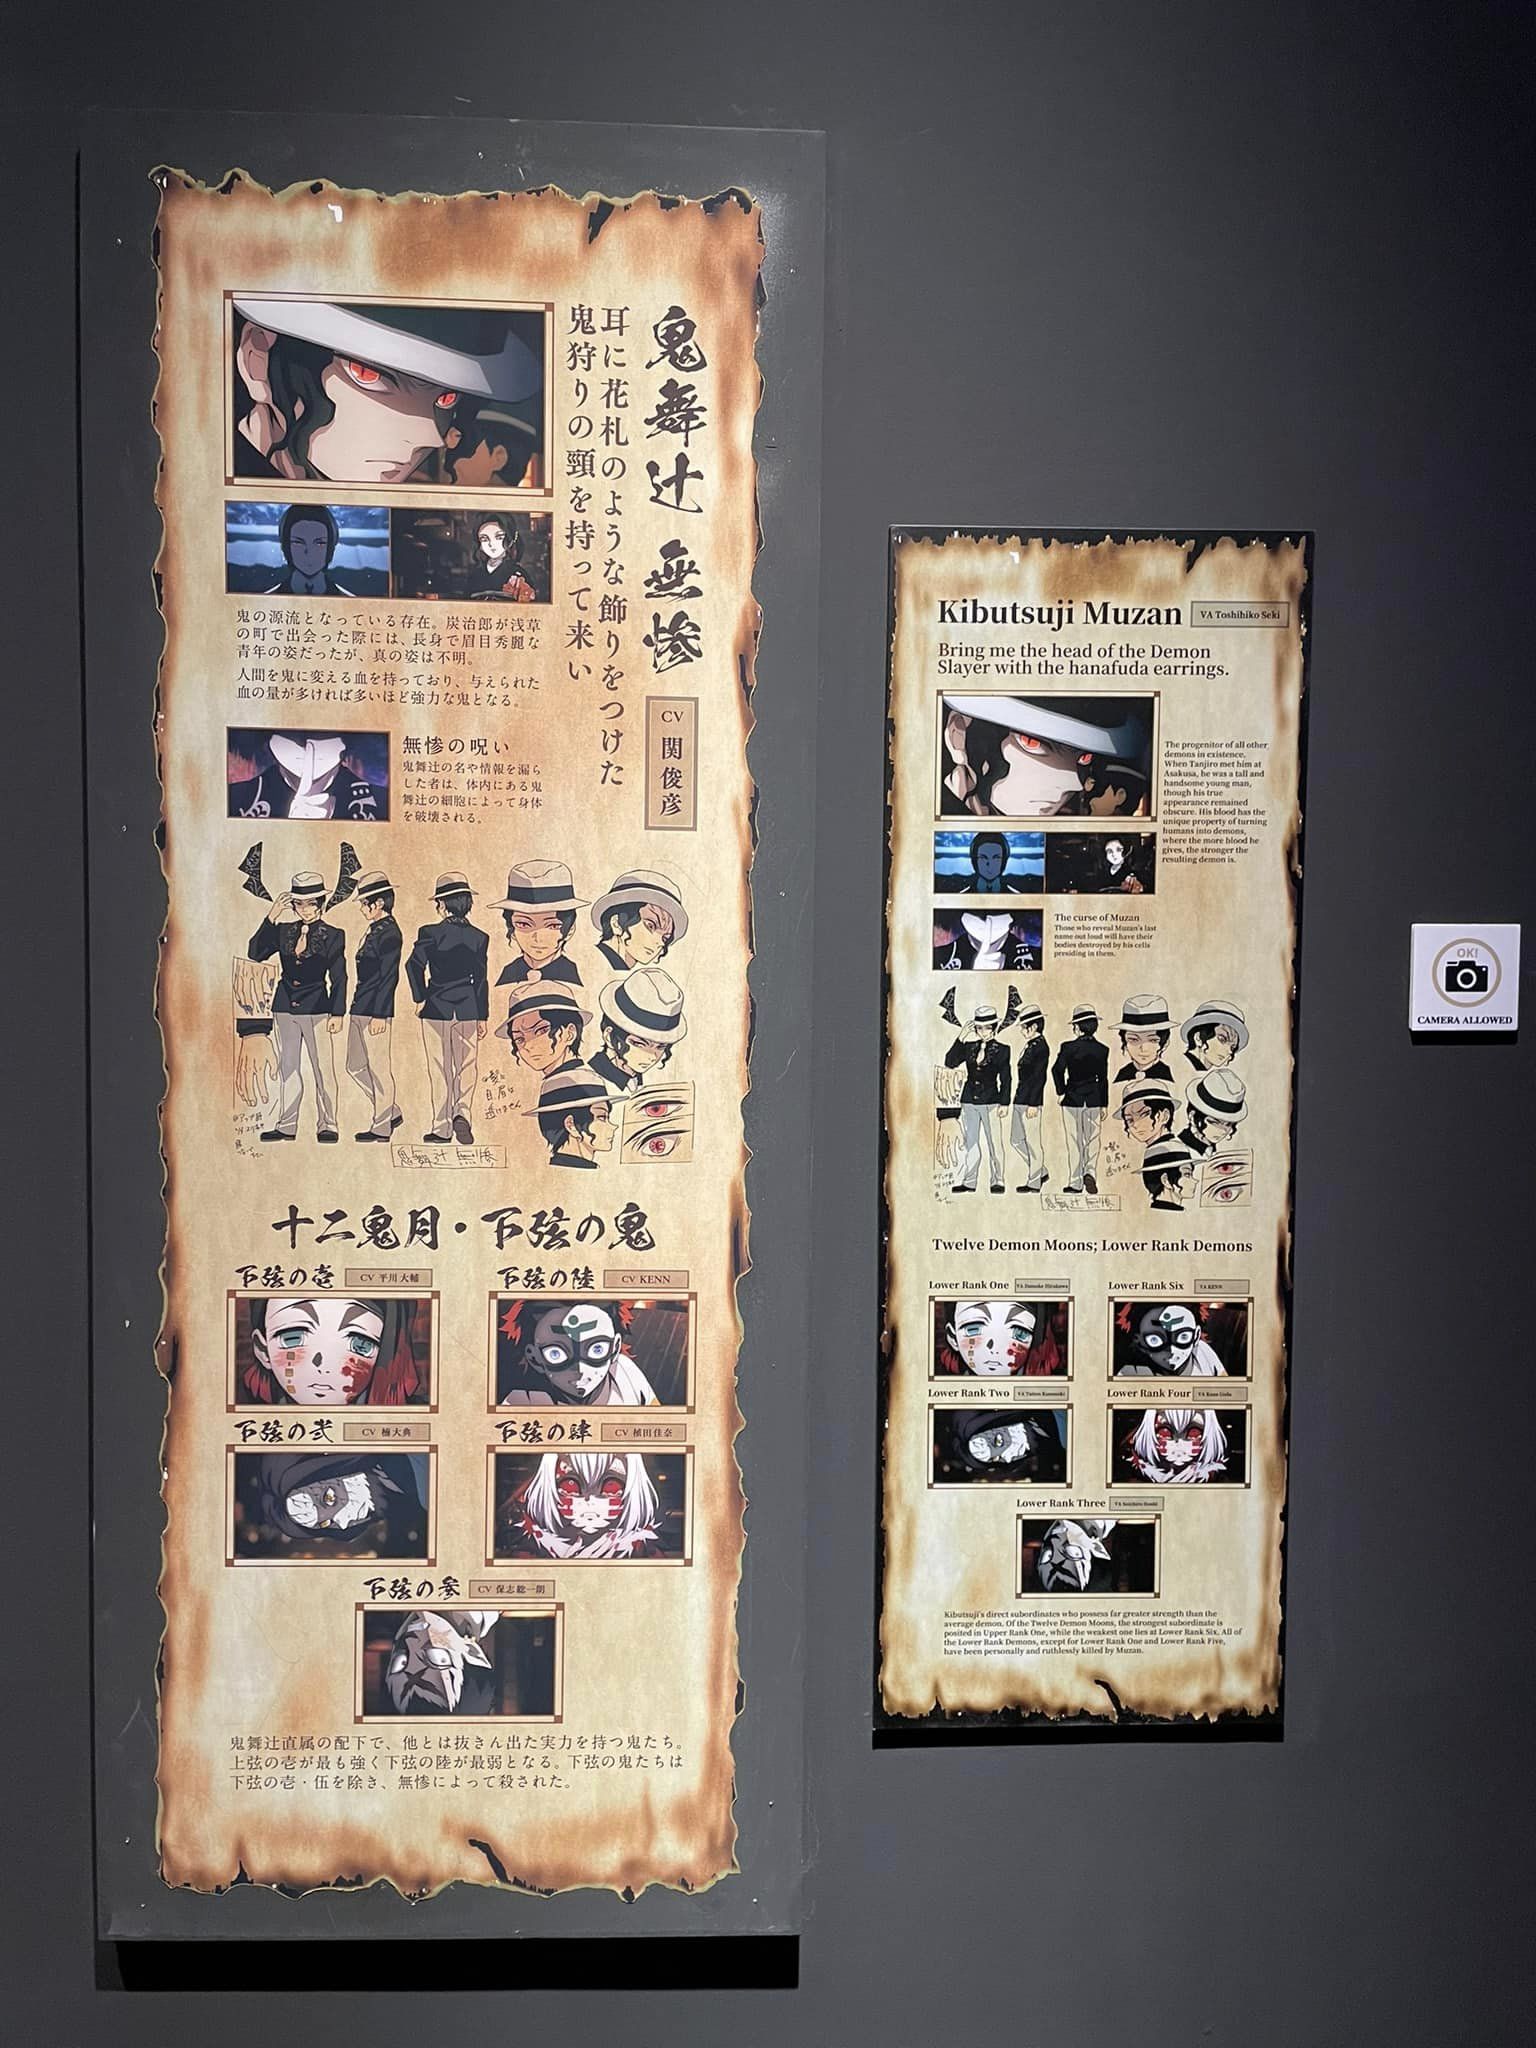 鬼舞辻 無惨
CV 関俊彦
耳に花札のような飾りをつけた
鬼狩りの頸を持って来い
鬼の源流となっている存在。炭治郎が浅草
の町で出会った際には、長身で眉目秀麗な
青年の姿だったが、真の姿は不明。
人間を鬼に変える血を持っており、与えられた
血の量が多ければ多いほど強力な鬼となる。
無惨の呪い
鬼舞辻の名や情報を漏ら
した者は、体内にある鬼
舞辻の細胞によって身体
を破壊される。
目、眉は
透けません
鬼舞辻 無惨
十二鬼月・下弦の鬼
下弦の壱 CV 平川大輔
下弦の陸 CV KENN
下弦の弐 CV 楠大典
下弦の肆 CV 植田佳奈
下弦の参 CV 保志総一朗
鬼舞辻直属の配下で、他とは抜きん出た実力を持つ鬼たち。
上弦の壱が最も強く下弦の陸が最弱となる。下弦の鬼たちは
下弦の壱・伍を除き、無惨によって殺された。
Kibutsuji Muzan VA Toshihiko Seki
Bring me the head of the Demon
Slayer with the hanafuda earrings.
The progenitor of all other
demons in existence.
When Tanjiro met him at
Asakusa, he was a tall and
handsome young man,
though his true
appearance remained
obscure. His blood has the
unique property of turning
humans into demons,
where the more blood he
gives, the stronger the
resulting demon is.
The curse of Muzan
Those who reveal Muzan's last
name out loud will have their
bodies destroyed by his cells
presiding in them.
目、眉は
透けません
鬼舞辻 無惨
Twelve Demon Moons; Lower Rank Demons
Lower Rank One VA Daisuke Hirakawa
Lower Rank Six VA KENN
Lower Rank Two VA Taiten Kusunoki
Lower Rank Four VA Kana Ueda
Lower Rank Three VA Soichiro Hoshi
Kibutsuji's direct subordinates who possess far greater strength than the
average demon. Of the Twelve Demon Moons, the strongest subordinate is
posited in Upper Rank One, while the weakest one lies at Lower Rank Six. All of
the Lower Rank Demons, except for Lower Rank One and Lower Rank Five,
have been personally and ruthlessly killed by Muzan.
OK!
CAMERA ALLOWED